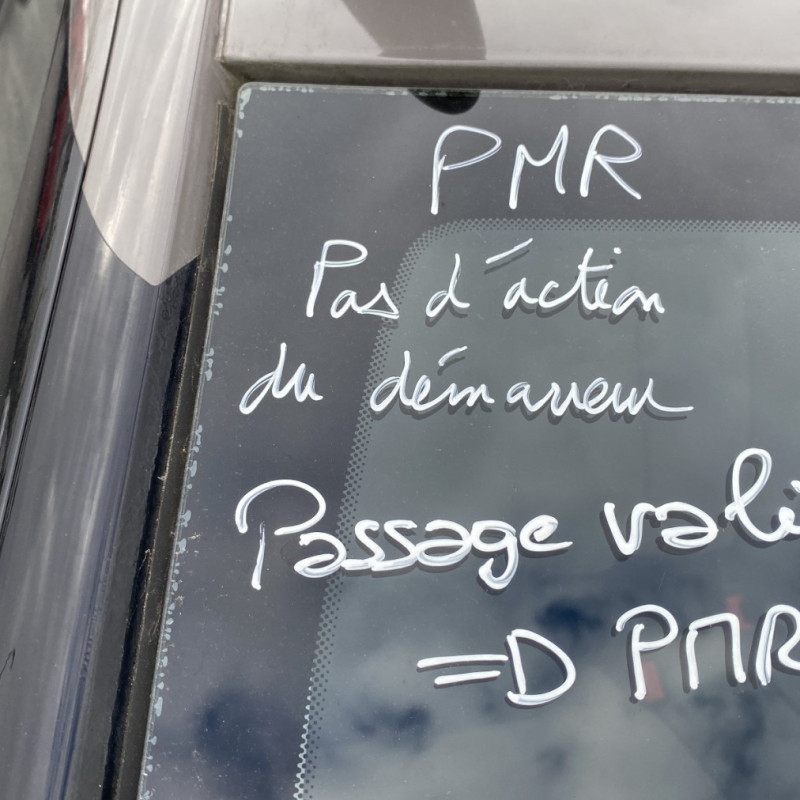 PMR
Pas d'action
du démarreur
Passage
=D PMR